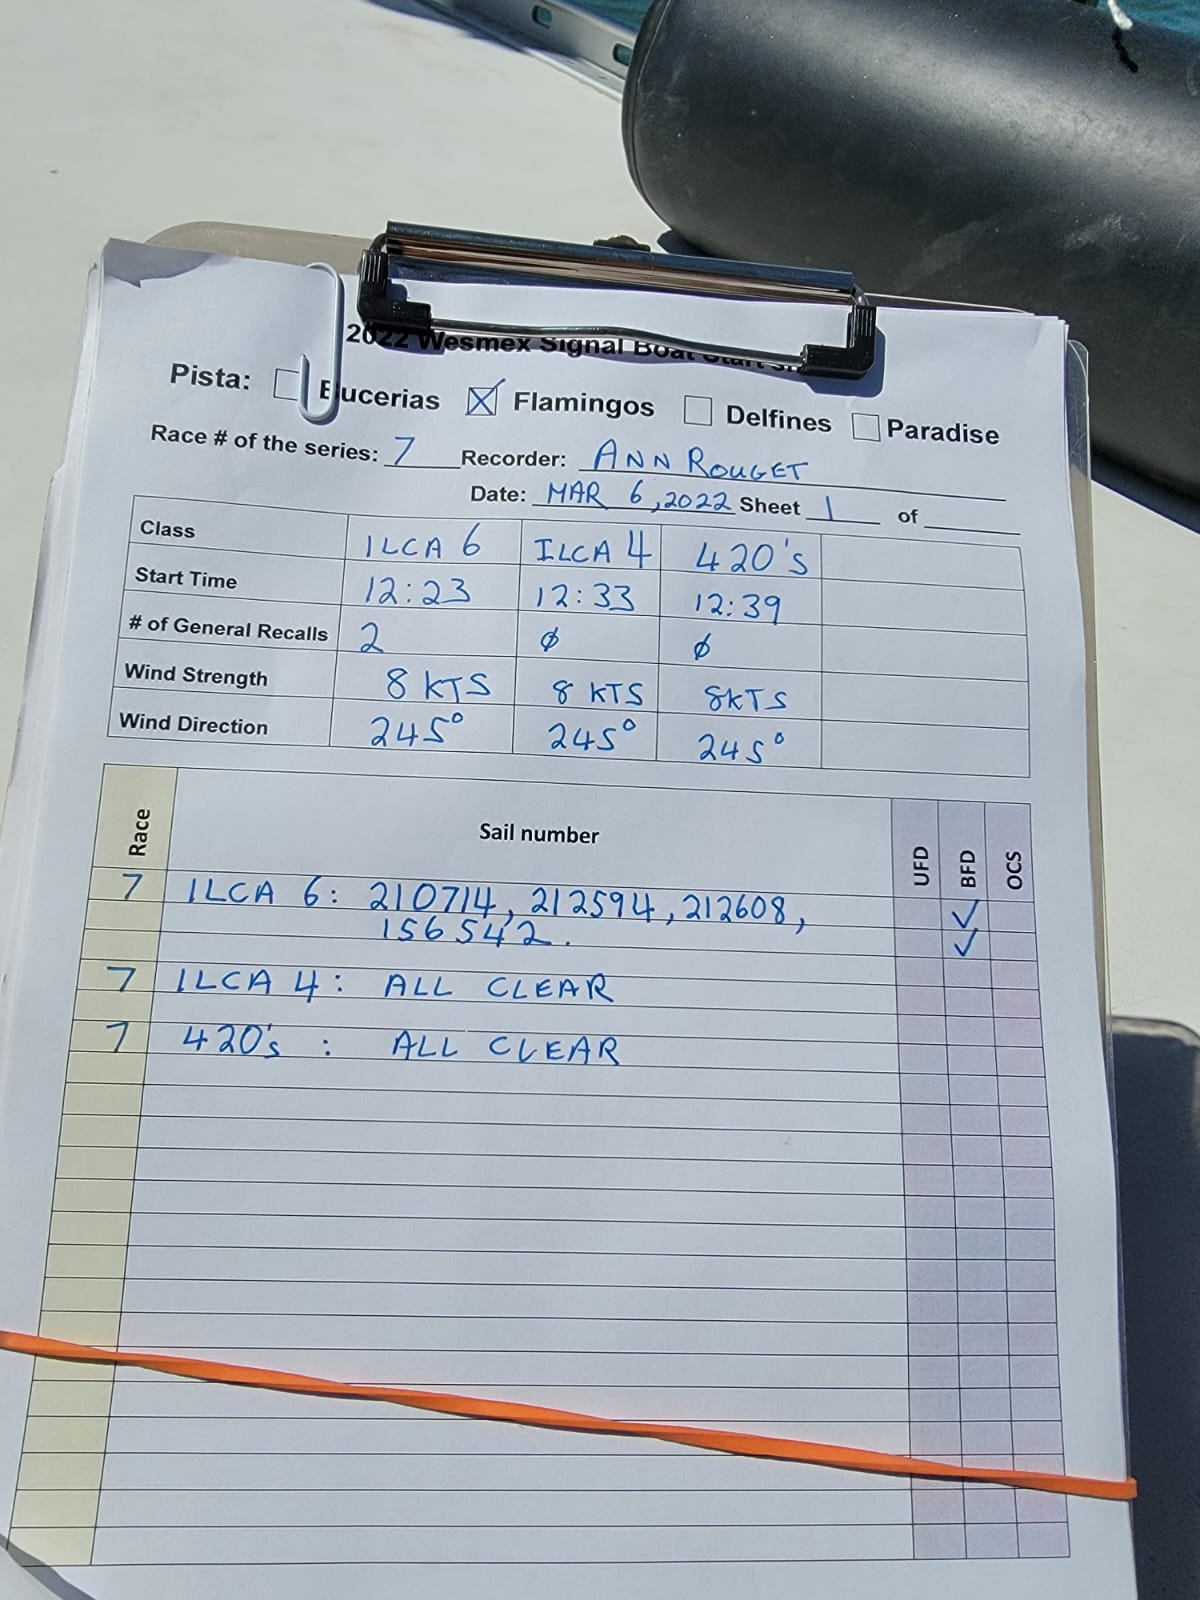 2022 Wesmex Signal Boat Start
Pista: Bucerias Flamingos Delfines Paradise
Race # of the series: 7 Recorder: ANN ROUGET
Date: MAR 6, 2022 Sheet 1 of
Class ILCA 6 ILCA 4 420's
Start Time 12:23 12:33 12:39
# of General Recalls 2 ϕ ϕ
Wind Strength 8 KTS 8 KTS 8KTS
Wind Direction 245° 245° 245°
Race Sail number UFD BFD OCS
7 ILCA 6: 210714, 212594, 212608, ✓
156542. ✓
7 ILCA 4: ALL CLEAR
7 420's : ALL CLEAR